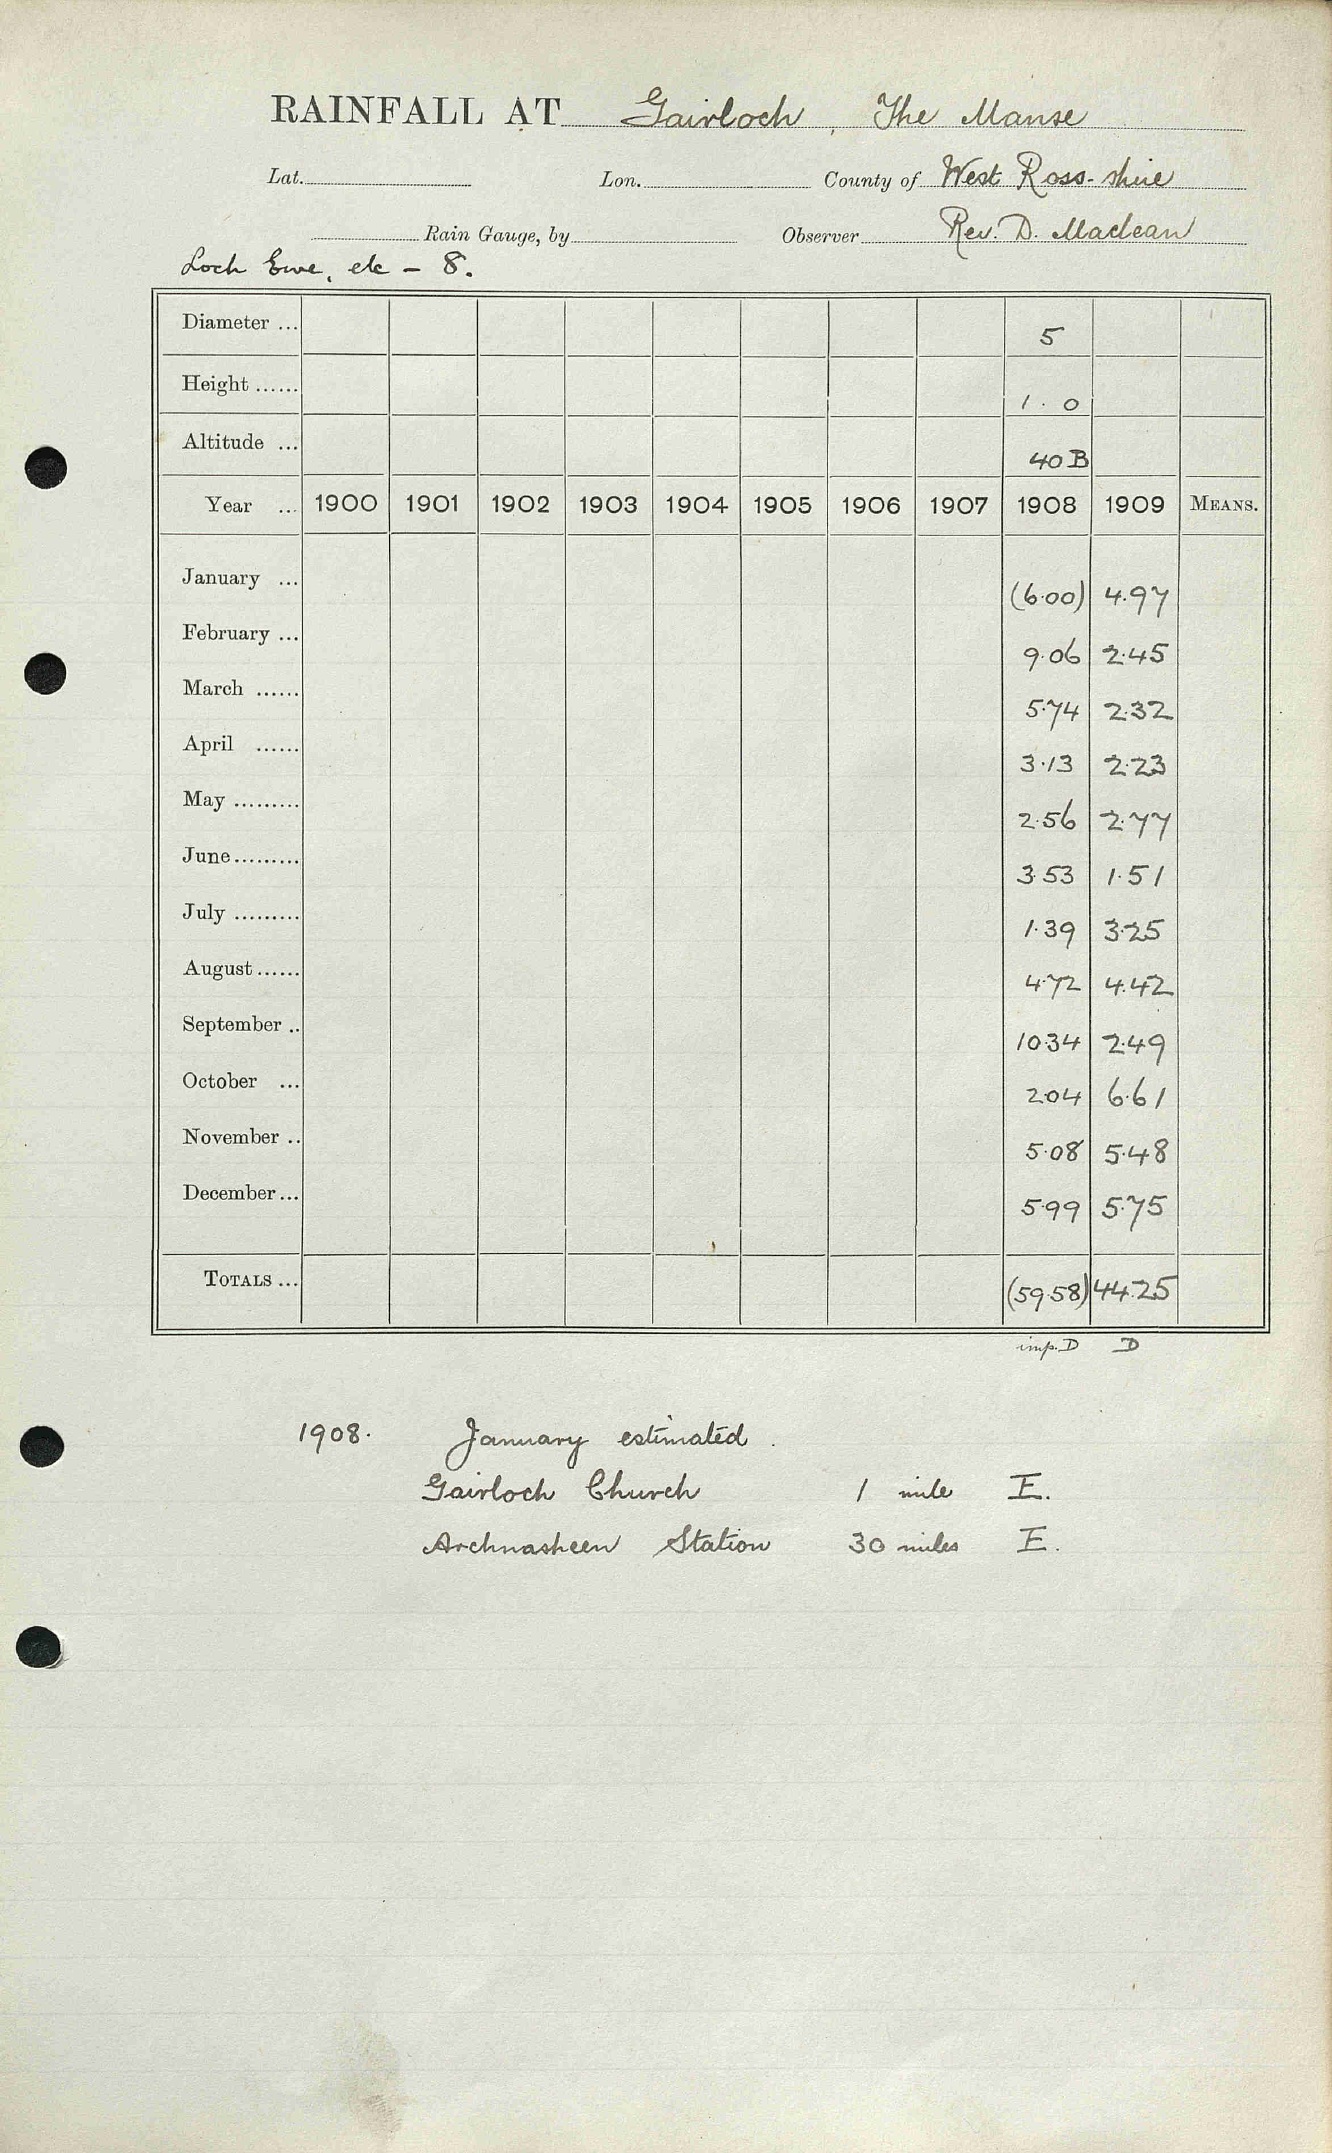 RAINFALL AT Gairloch, The Manse
Lat. Lon. County of West Ross-shire
Rain Gauge, by Observer Rev. D. Maclean
Loch Ewe, etc – 8.
Diameter ... 5
Height ...... 1.0
Altitude ... 40 B
Year ... 1900 1901 1902 1903 1904 1905 1906 1907 1908 1909 MEANS.
January ... (6.00) 4.97
February ... 9.06 2.45
March ...... 5.74 2.32
April ...... 3.13 2.23
May ......... 2.56 2.77
June ......... 3.53 1.51
July ......... 1.39 3.25
August ...... 4.72 4.42
September .. 10.34 2.49
October ... 2.04 6.61
November .. 5.08 5.48
December ... 5.99 5.75
TOTALS ... (59.58) 44.25
imp. D D
1908. January estimated.
Gairloch Church 1 mile E.
Archnasheen Station 30 miles E.